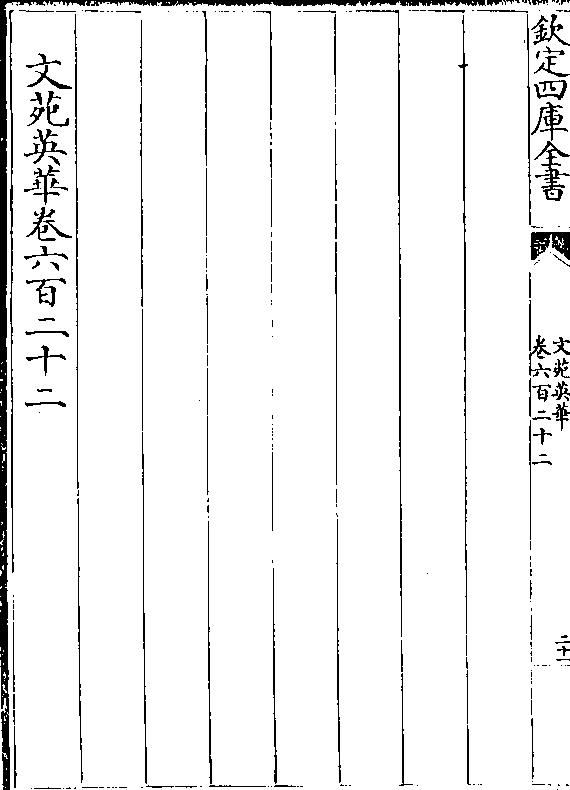 欽定四庫全書
文苑英華
卷六百二十二
二十一
文苑英華卷六百二十二